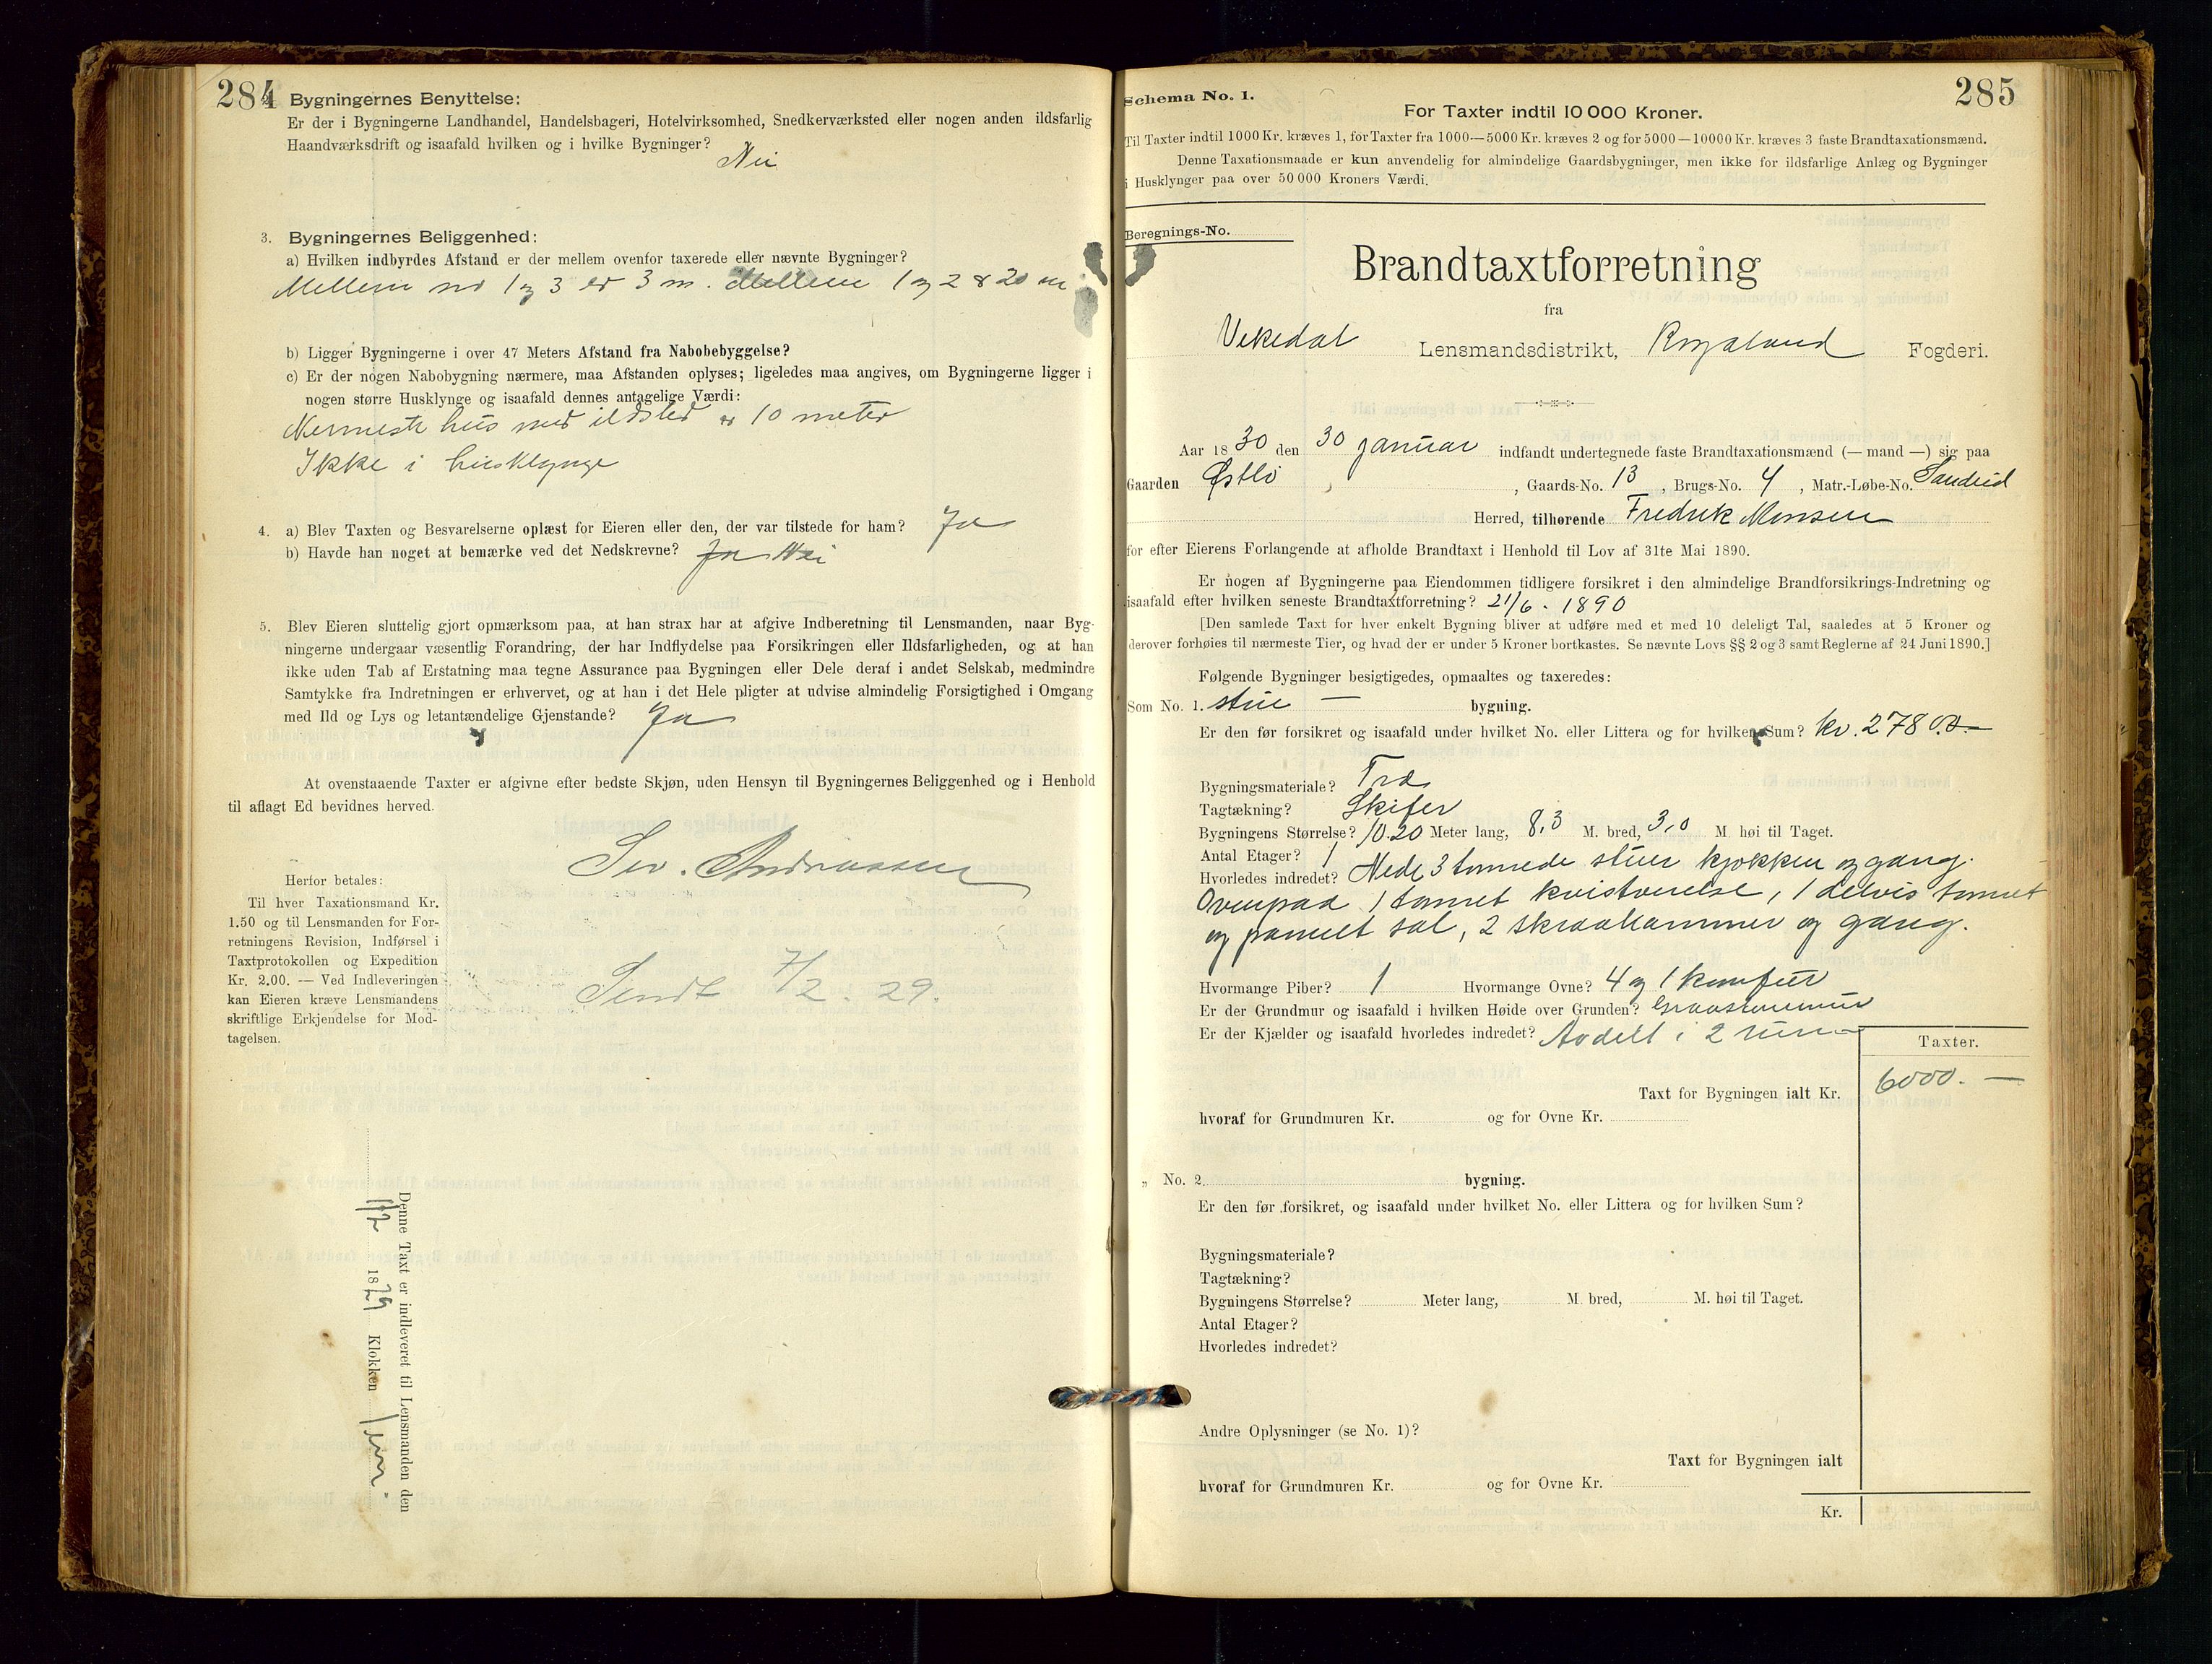 284
Bygningernes Benyttelse:
Er der i Bygningerne Landhandel, Handelsbageri, Hotelvirksomhed, Snedkerværksted eller nogen anden ildsfarlig
Haandværksdrift og isaafald hvilken og i hvilke Bygninger? Nei
3. Bygningernes Beliggenhed:
a) Hvilken indbyrdes Afstand er der mellem ovenfor taxerede eller nævnte Bygninger?
Mellem no 1 og 3 er 3 m. Mellem 1 og 2 er 20 m
b) Ligger Bygningerne i over 47 Meters Afstand fra Nabobebyggelse?
c) Er der nogen Nabobygning nærmere, maa Afstanden oplyses; ligeledes maa angives, om Bygningerne ligger i
nogen større Husklynge og isaafald dennes antagelige Værdi:
Nermeste hus med ildsted er 10 meter
Ikke i husklynge
4. a) Blev Taxten og Besvarelserne oplæst for Eieren eller den, der var tilstede for ham? Ja
b) Havde han noget at bemærke ved det Nedskrevne? Ja Nei
5. Blev Eieren sluttelig gjort opmærksom paa, at han strax har at afgive Indberetning til Lensmanden, naar Byg-
ningerne undergaar væsentlig Forandring, der har Indflydelse paa Forsikringen eller Ildsfarligheden, og at han
ikke uden Tab af Erstatning maa tegne Assurance paa Bygningen eller Dele deraf i andet Selskab, medmindre
Samtykke fra Indretningen er erhvervet, og at han i det Hele pligter at udvise almindelig Forsigtighed i Omgang
med Ild og Lys og letantændelige Gjenstande? Ja
At ovenstaaende Taxter er afgivne efter bedste Skjøn, uden Hensyn til Bygningernes Beliggenhed og i Henhold
til aflagt Ed bevidnes herved.
Andreassen
Herfor betales:
Til hver Taxationsmand Kr.
1.50 og til Lensmanden for For-
retningens Revision, Indførsel i
Taxtprotokollen og Expedition
Kr. 2.00. — Ved Indleveringen
kan Eieren kræve Lensmandens
skriftlige Erkjendelse for Mod-
tagelsen.
Sendt 7/2. 29.
Denne Taxt er indleveret til Lensmanden den
1/2 1829 Klokken
285
Schema No. 1.
For Taxter indtil 10 000 Kroner.
Til Taxter indtil 1000 Kr. kræves 1, for Taxter fra 1000—5000 Kr. kræves 2 og for 5000—10000 Kr. kræves 3 faste Brandtaxationsmænd.
Denne Taxationsmaade er kun anvendelig for almindelige Gaardsbygninger, men ikke for ildsfarlige Anlæg og Bygninger
i Husklynger paa over 50 000 Kroners Værdi.
Beregnings-No.
Brandtaxtforretning
fra
Vikedal Lensmandsdistrikt, Rogaland Fogderi.
Aar 1830 den 30 januar indfandt undertegnede faste Brandtaxationsmænd (— mand —) sig paa
Gaarden Østbø, Gaards-No. 13, Brugs-No. 4, Matr.-Løbe-No. Sandeid
Herred, tilhørende Fredrik Monsen
for efter Eierens Forlangende at afholde Brandtaxt i Henhold til Lov af 31te Mai 1890.
Er nogen af Bygningerne paa Eiendommen tidligere forsikret i den almindelige Brandforsikrings-Indretning og
isaafald efter hvilken seneste Brandtaxtforretning? 21/6. 1890
[Den samlede Taxt for hver enkelt Bygning bliver at udføre med et med 10 deleligt Tal, saaledes at 5 Kroner og
derover forhøies til nærmeste Tier, og hvad der er under 5 Kroner bortkastes. Se nævnte Lovs §§ 2 og 3 samt Reglerne af 24 Juni 1890.]
Følgende Bygninger besigtigedes, opmaaltes og taxeredes:
Som No. 1. stue — bygning.
Er den før forsikret og isaafald under hvilket No. eller Littera og for hvilken Sum? kr. 2780.0
Bygningsmateriale? Træ
Tagtækning? Skifer
Bygningens Størrelse? 10.20 Meter lang, 8,3 M. bred, 3,0 M. høi til Taget.
Antal Etager? 1
Hvorledes indredet? Nede 3 tømrede stuer kjøkken og gang.
Ovenpaa 1 tømret kvistværelse, 1 delvis tømret
og panelt sal, 2 skraakammer og gang.
Hvormange Piber? 1 Hvormange Ovne? 4 og 1 komfur
Er der Grundmur og isaafald i hvilken Høide over Grunden? Graastensmur
Er der Kjælder og isaafald hvorledes indredet? Avdelt i 2 rum
Taxter.
Taxt for Bygningen ialt Kr. 6000. —
hvoraf for Grundmuren Kr. og for Ovne Kr.
„ No. 2 bygning.
Er den før forsikret, og isaafald under hvilket No. eller Littera og for hvilken Sum?
Bygningsmateriale?
Tagtækning?
Bygningens Størrelse? Meter lang, M. bred, M. høi til Taget.
Antal Etager?
Hvorledes indredet?
Andre Oplysninger (se No. 1)?
Taxt for Bygningen ialt
hvoraf for Grundmuren Kr. og for Ovne Kr.
Kr.